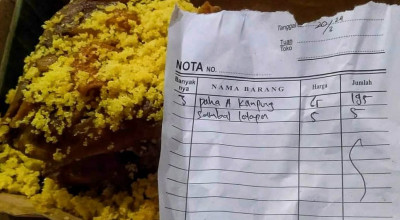 Tanggal
Tuan
Toko
NOTA NO.
Banyak nya NAMA BARANG Harga Jumlah
5 paha A kampung
Sambal 5 5